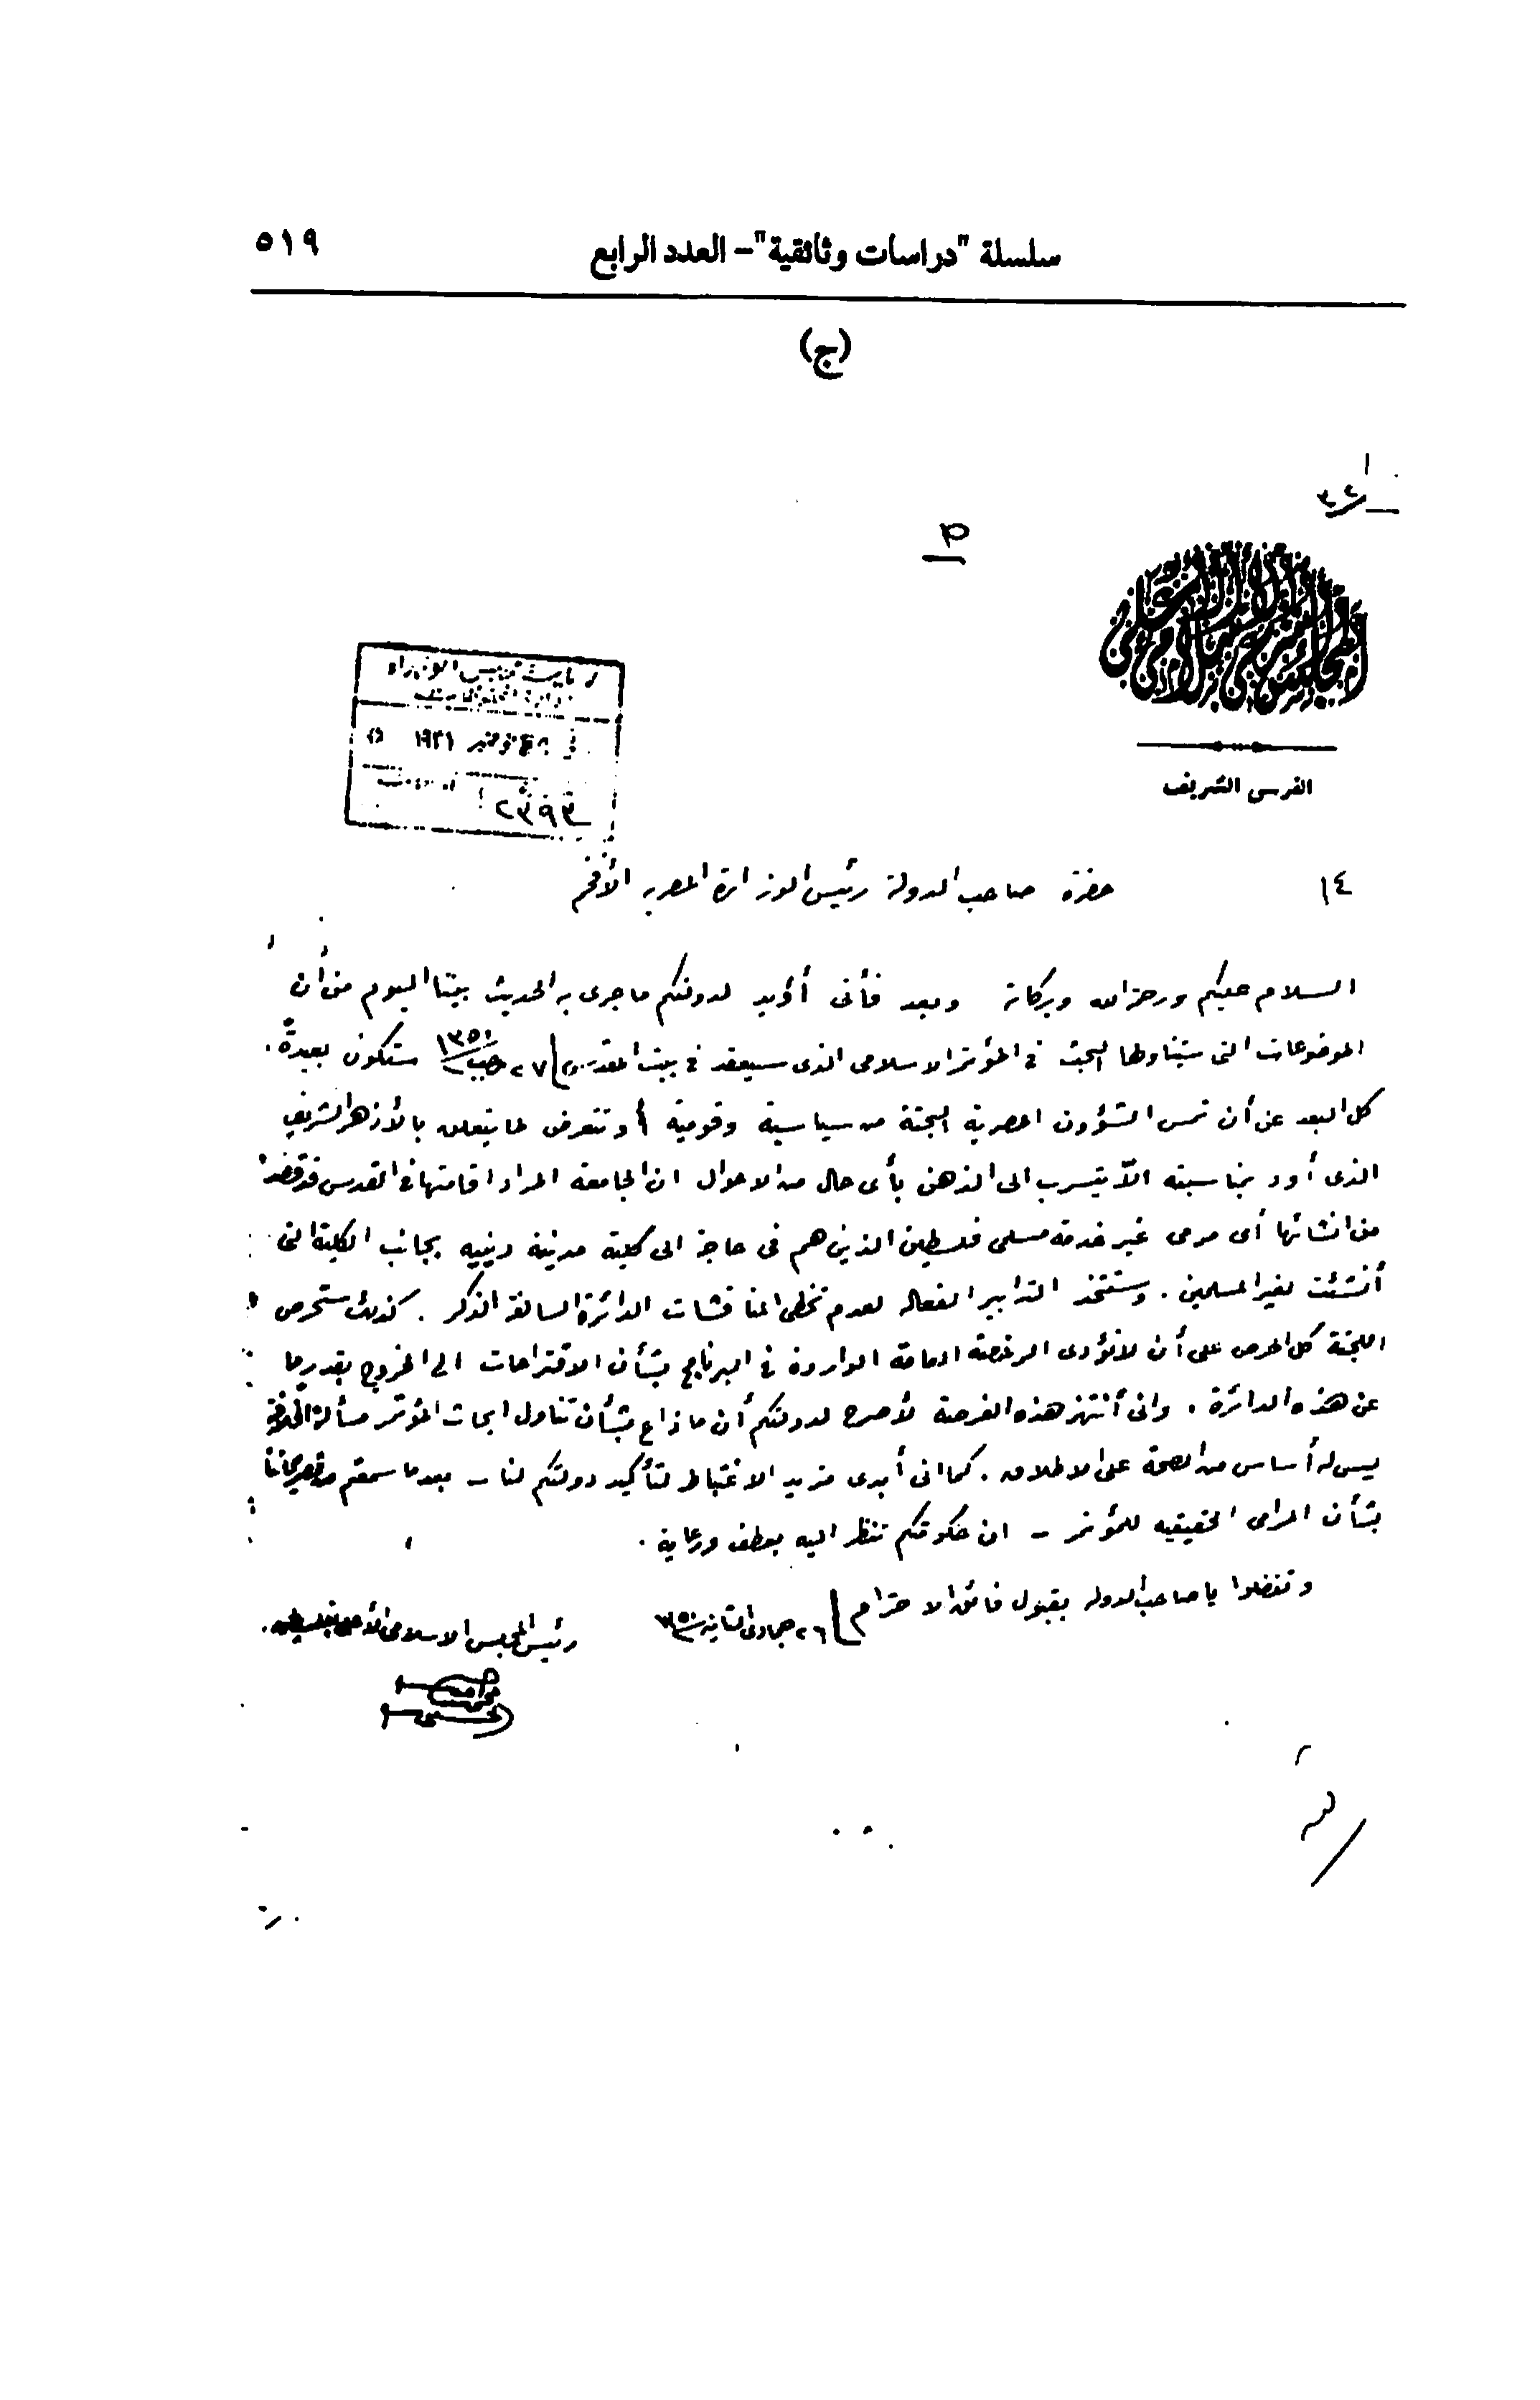 ٥١٩
سلسلة "دراسات وثائقية" – العدد الرابع
(ج)
القدس الشريف
في نوفمبر ١٩٣١
٢٣٩٣
١٤
حضرة صاحب الدولة رئيس الوزارة المصريه الأفخم
السلام عليكم ورحمة الله وبركاته وبعد فأنى أؤيد لدولتكم ما جرى به الحديث بيننا اليوم من أن
الموضوعات التى سيتناولها البحث فى المؤتمر الاسلامى الذى سيعقد فى بيت المقدس ٢٧ رجب ١٣٥٠ ستكون بعيدة
كل البعد عن أن تمس الشؤون المصرية البحتة من سياسية وقومية أو تتعرض لما يتعلق بالأزهر الشريف
الذى أود بمناسبته الاّ يتسرب الى الذهن بأى حال من الاحوال ان الجامعة المراد اقامتها فى القدس
من انشائها أى مرمى غير خدمة مسلمى فلسطين الذين هم فى حاجة الى كلية مدنية دينيه بجانب الكلية التى
أنشئت لغير المسلمين . وستتخذ التدابير الفعاله لعدم تخطى المناقشات الدائرة السالفة الذكر . كذلك ستحرص
اللجنة كل الحرص على أن لا تؤدى الرخصة العامة الواردة فى البرنامج بشأن الاقتراحات الى الخروج بقدر ما
عن هذه الدائرة . وانى أنتهز هذه الفرصة لأصرح لدولتكم أن ما ذاع بشأن تناول ابحاث المؤتمر مسألة الخلافة
ليس له أساس من الصحة على الاطلاق . كما انى أبدى مزيد الاغتباط لتأكيد دولتكم لنا - بعدما سمعتم من تصريحاتنا
بشأن المرامى الحقيقيه للمؤتمر - ان حكومتكم تنظر اليه بعطف ورعاية .
وتفضلوا يا صاحب الدوله بقبول فائق الاحترام ٢٦ جمادى الثانية ١٣٥٠
رئيس المجلس الاسلامى الأعلى بفلسطين
محمد امين
الحسينى